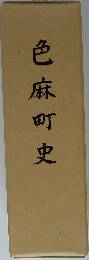 色麻町史